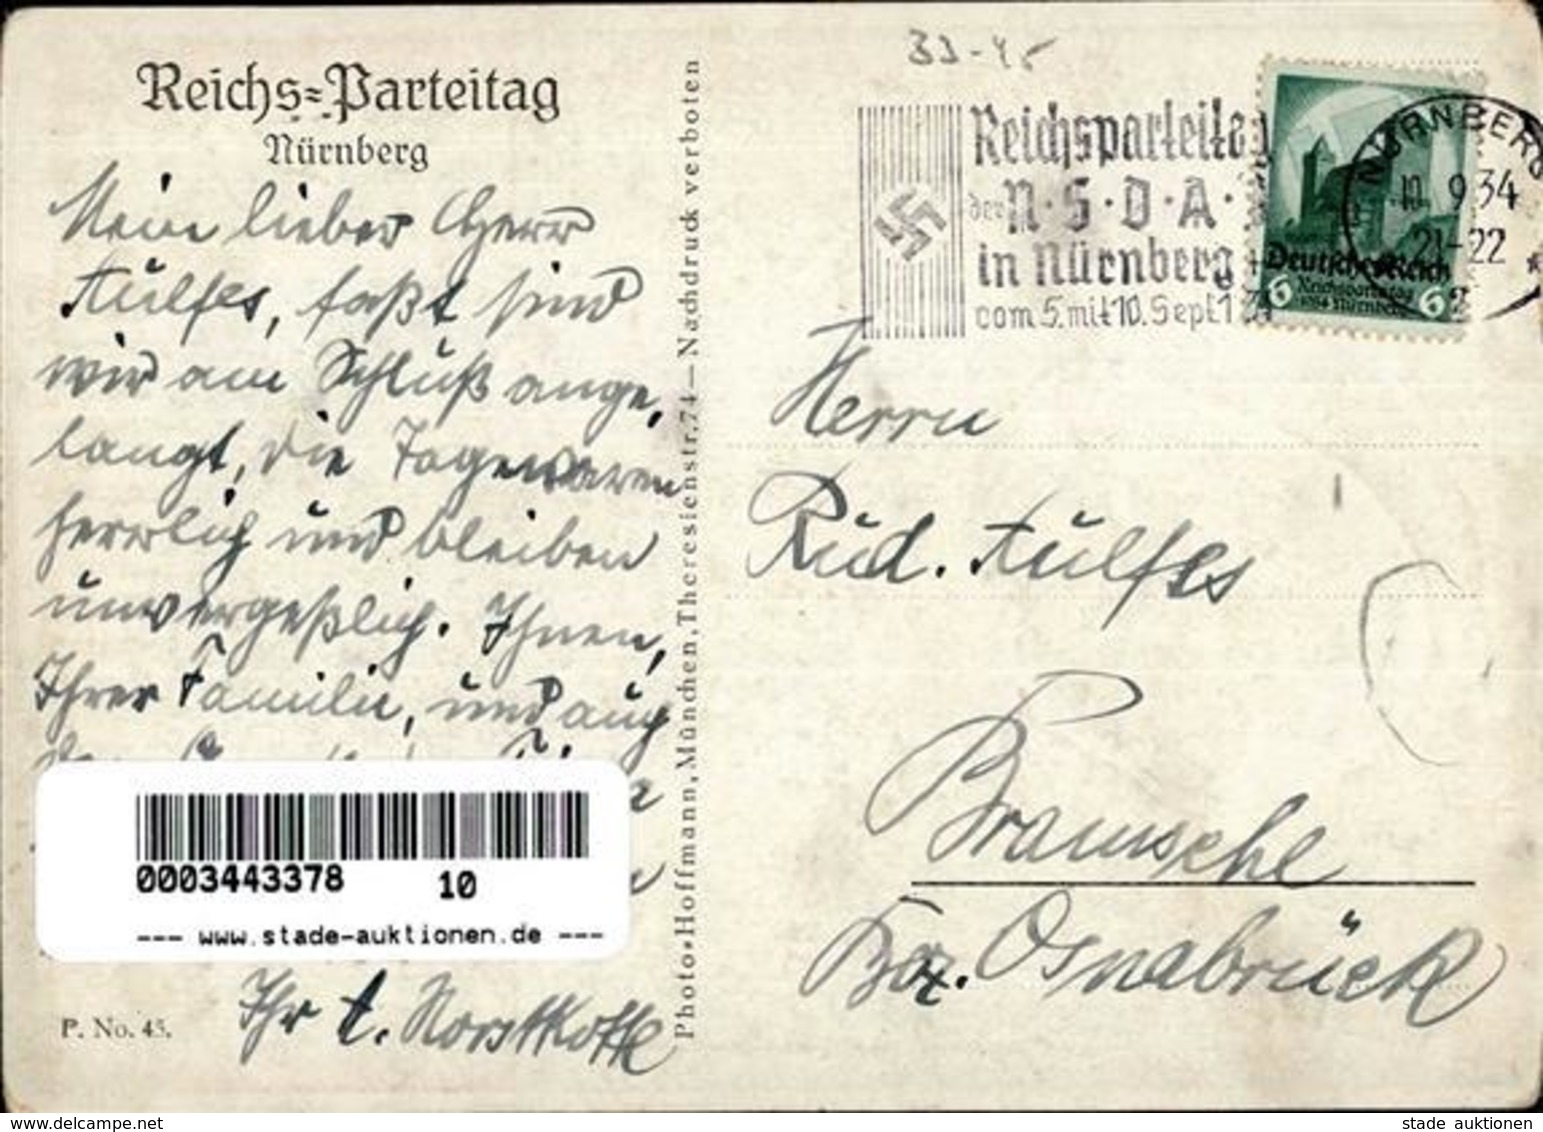 Reichs=Parteitag
Nürnberg
Mein lieber Herr
Aulfes, jetzt sind
wir am Schluß ange,
langt, die Tage waren
herrlich und bleiben
unvergeßlich. Ihnen,
Ihrer Familie, und auch
0003443378 10
--- www.stade-auktionen.de ---
Ihr
P. No. 43.
Photo-Hoffmann, München, Theresienstr. 74 — Nachdruck verboten
33-45
Reichsparteitag
der N·S·D·A·
in Nürnberg
vom 5. mit 10. Sept. 1
Deutsches Reich
Reichsparteitag
1934 Nürnberg
6 6
NÜRNBERG
10.9.34
21-22
2
*
Herrn
Rud. Aulfes
Bramsche
Bez. Osnabrück
www.delcampe.net
stade auktionen